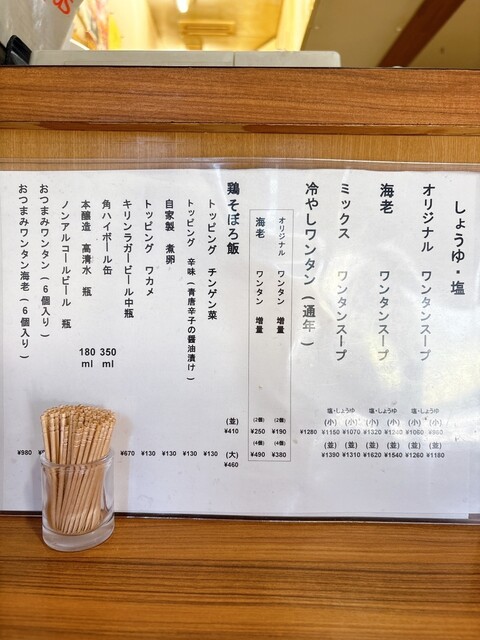 しょうゆ・塩
オリジナル ワンタンスープ
塩・しょうゆ
(小) (小)
¥1060 ¥980
(並) (並)
¥1260 ¥1180
海老 ワンタンスープ
塩・しょうゆ
(小) (小)
¥1320 ¥1240
(並) (並)
¥1620 ¥1540
ミックス ワンタンスープ
塩・しょうゆ
(小) (小)
¥1150 ¥1070
(並) (並)
¥1390 ¥1310
冷やしワンタン (通年)
¥1280
オリジナル ワンタン 増量
(2個)
¥190
(4個)
¥380
海老 ワンタン 増量
(2個)
¥250
(4個)
¥490
鶏そぼろ飯
(並)
¥410
(大)
¥460
トッピング チンゲン菜
¥130
トッピング 辛味(青唐辛子の醤油漬け)
¥130
自家製 煮卵
¥130
トッピング ワカメ
¥130
キリンラガービール中瓶
¥670
角ハイボール缶 350ml
本醸造 高清水 瓶 180ml
ノンアルコールビール 瓶
おつまみワンタン(6個入り)
おつまみワンタン海老(6個入り)
¥980